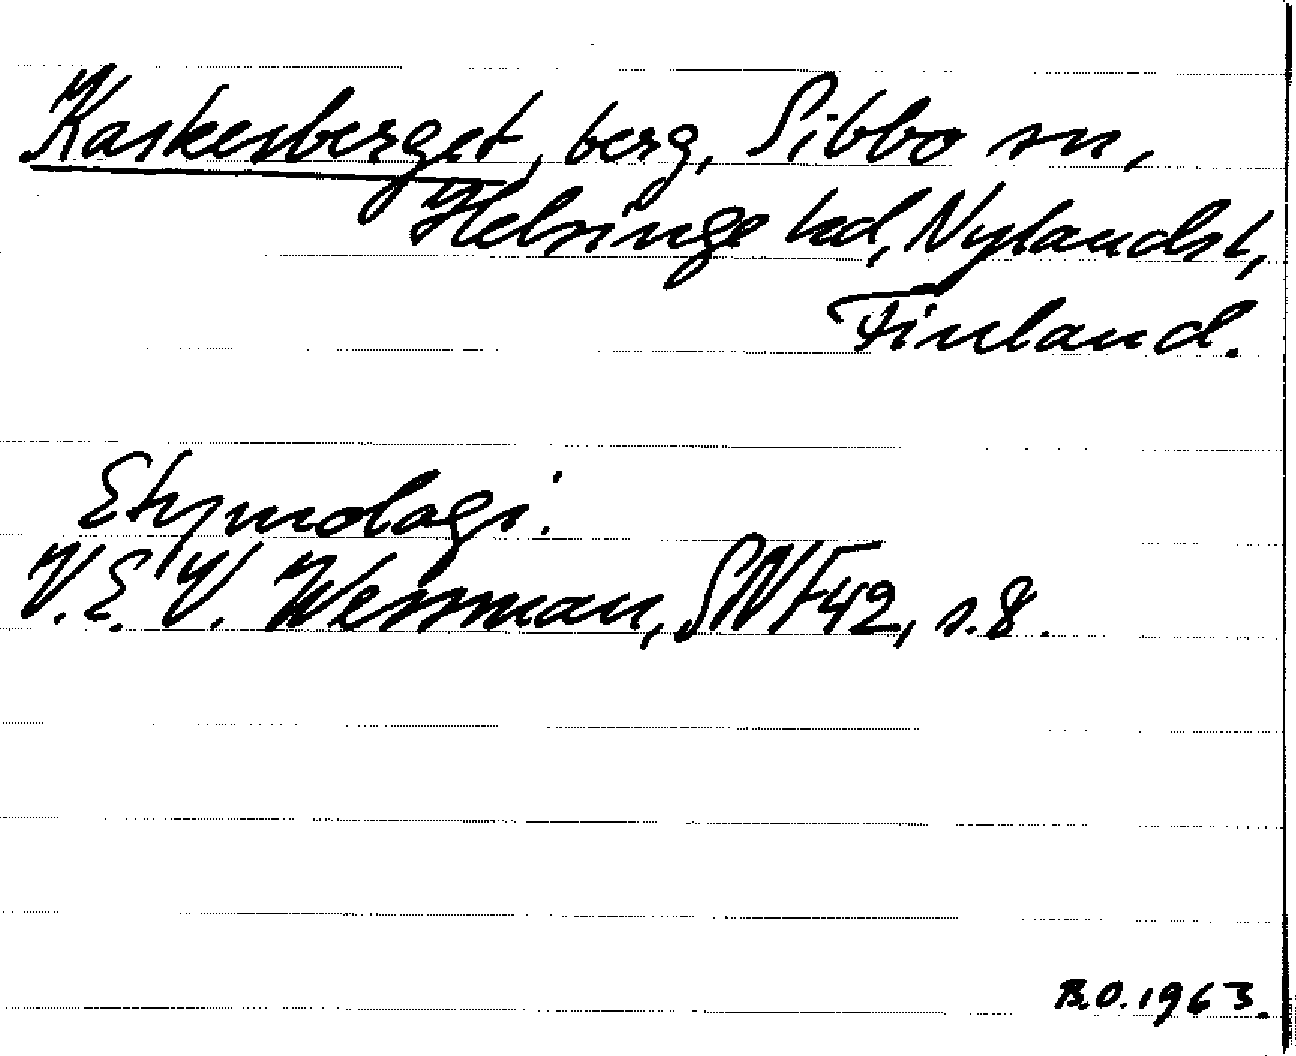 Kaskesberget, berg, Sibbo sn,
Helsinge hd, Nylandsl,
Finland.
Etymologi:
V.E.V. Wessman, SNF 42, s. 8.
B.O. 1963.